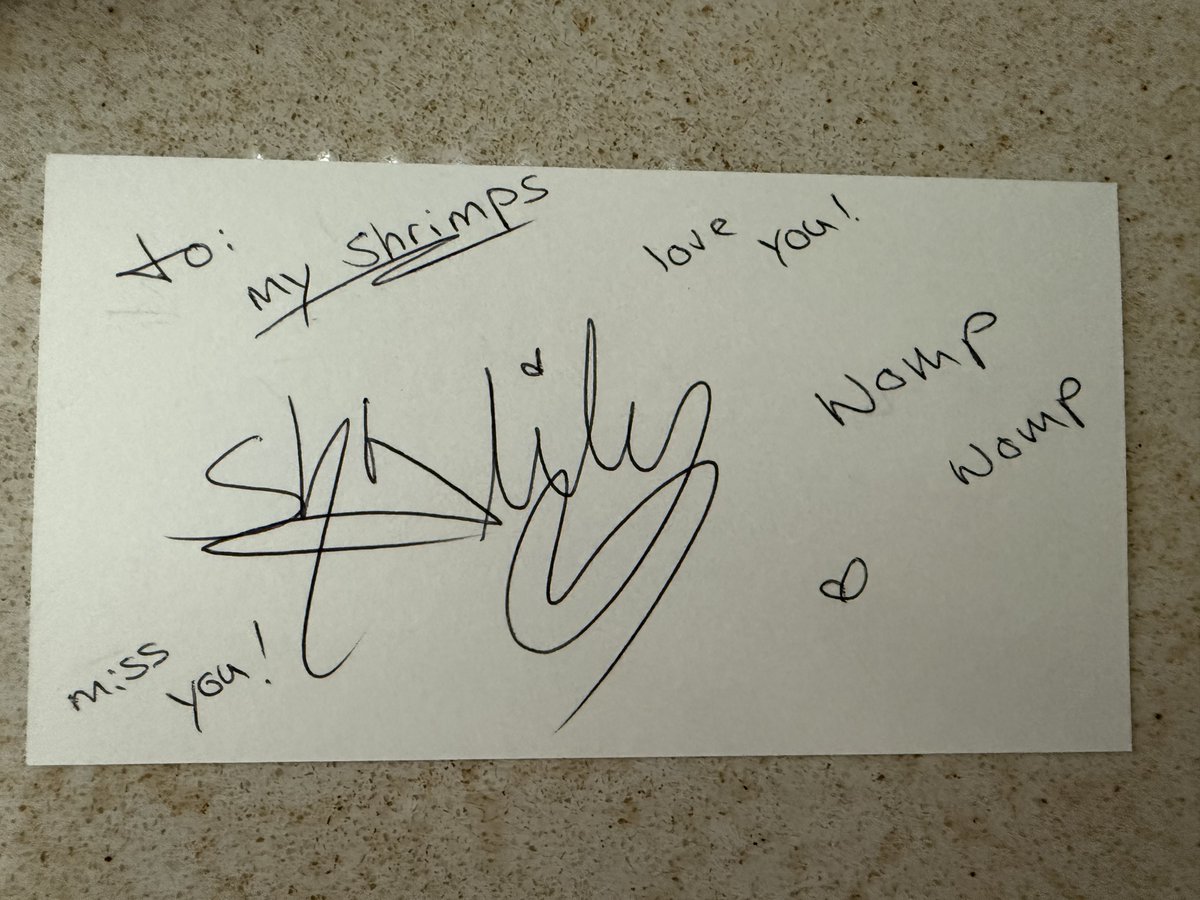 to:
my shrimps
love you!
Womp
Womp
miss
you!